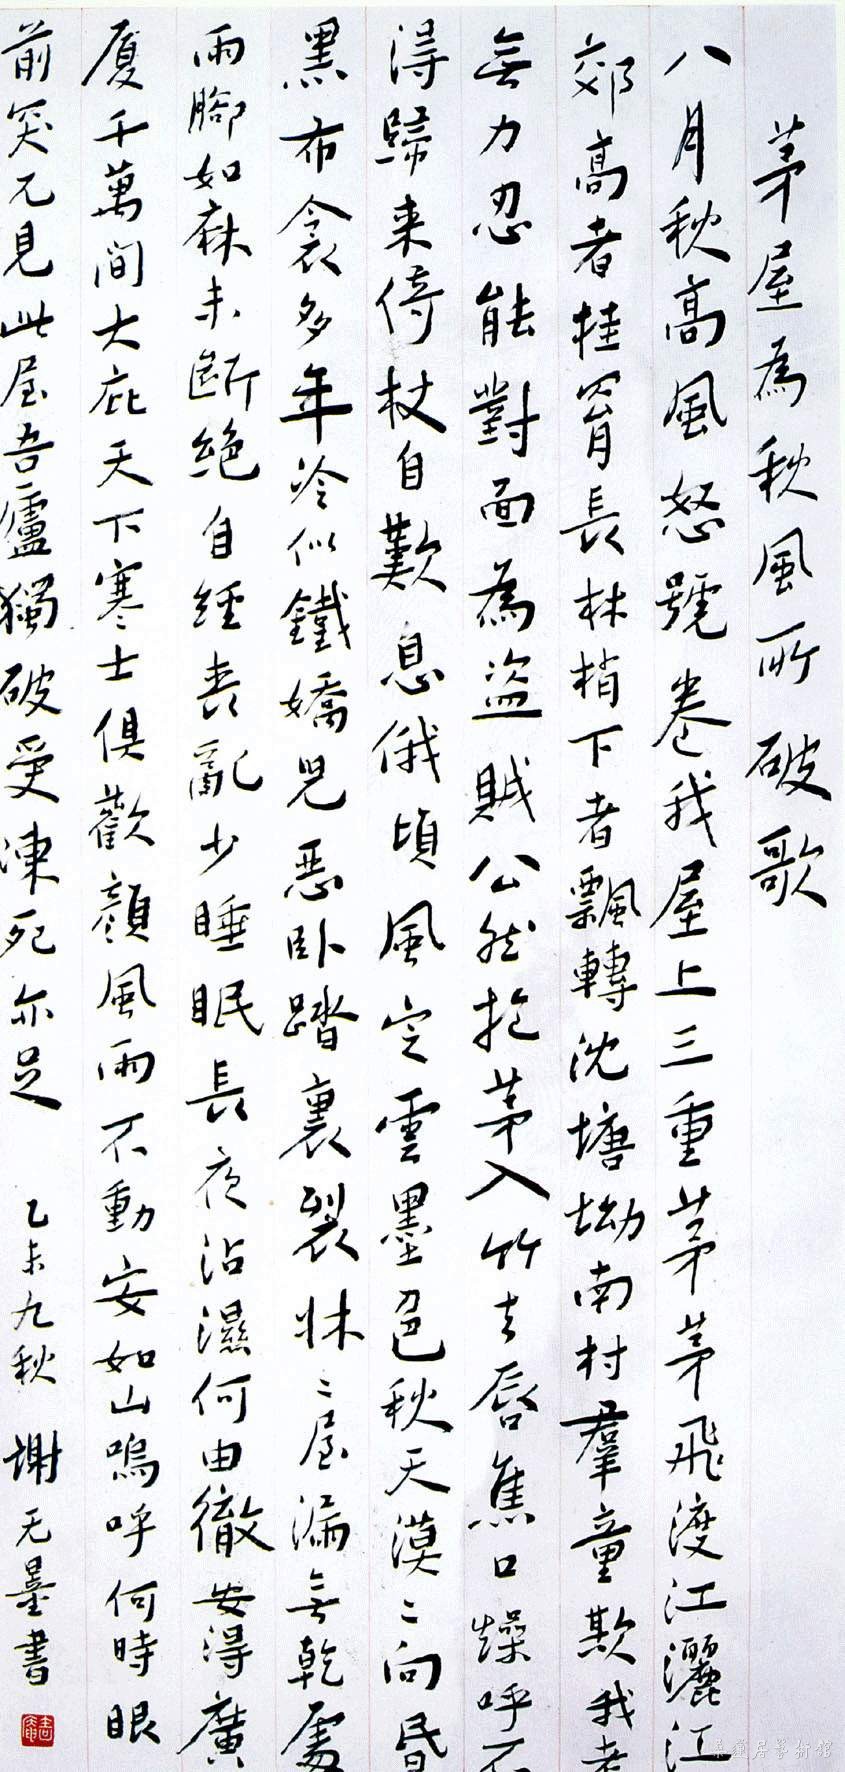 茅屋為秋風所破歌
八月秋高風怒號卷我屋上三重茅茅飛渡江灑江
郊高者挂罥長林梢下者飄轉沈塘坳南村羣童欺我老
無力忍能對面為盜賊公然抱茅入竹去唇焦口燥呼不
得歸来倚杖自歎息俄頃風定雲墨色秋天漠〻向昏
黑布衾多年冷似鐵嬌兒惡卧踏裏裂牀〻屋漏無乾處
雨腳如麻未斷絕自經喪亂少睡眠長夜沾濕何由徹安得廣
厦千萬間大庇天下寒士俱歡顏風雨不動安如山嗚呼何時眼
前突兀見此屋吾廬獨破受凍死亦足 乙未九秋 謝无量書